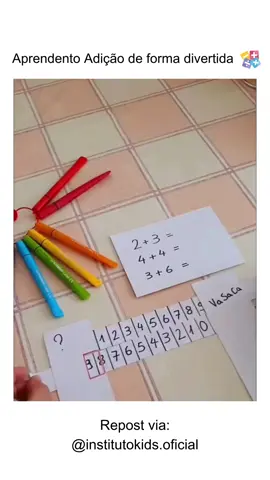 Aprendento Adição de forma divertida
2+3 =
4+4 =
3+6 =
?
1 2 3 4 5 6 7 8 9
3 8 7 6 5 4 3 2 1 0
Repost via:
@institutokids.oficial